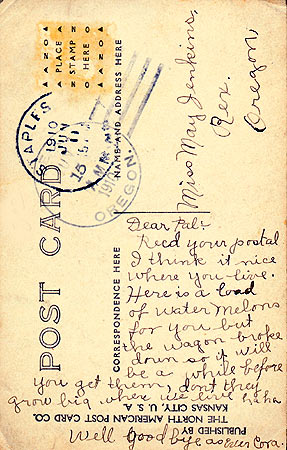 POST CARD
CORRESPONDENCE HERE
NAME AND ADDRESS HERE
AZO
PLACE
STAMP
HERE
STAPLES
JUN
1910
OREGON.
1910
Miss May Jenkins,
Rex.
Oregon
Dear Pal:-
Recd your postal
I think it nice
where you live.
Here is a load
of water melons
for you but
the wagon broke
down so it will
be a while before
you get them, don't they
grow big where we live haha
Well Good bye as Ever Cora.
PUBLISHED BY
THE NORTH AMERICAN POST CARD CO.
KANSAS CITY, U. S. A.